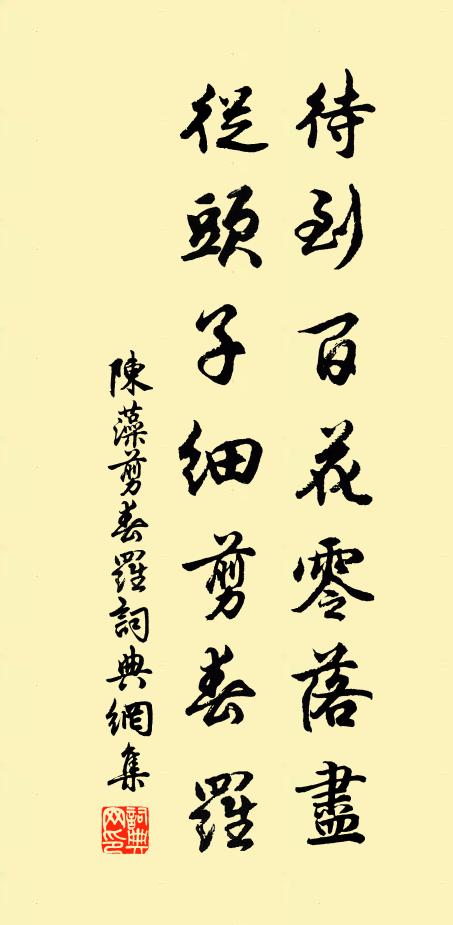 待到百花零落盡
從頭子細剪春羅
陳藻剪春羅詞典網集
詞典网印